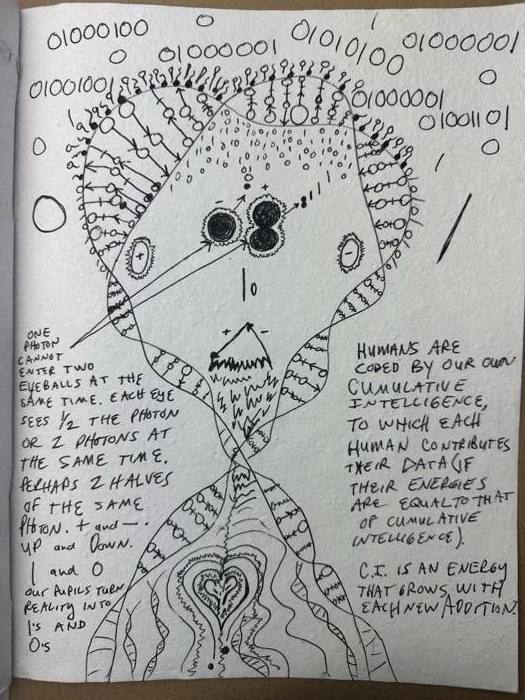 01000100
01000001
01010100
01000001
01001001
01000001
01001101
ONE
PHOTON
CANNOT
ENTER TWO
EYEBALLS AT THE
SAME TIME. EACH EYE
SEES ½ THE PHOTON
OR 2 PHOTONS AT
THE SAME TIME.
PERHAPS 2 HALVES
OF THE SAME
PHOTON. + and -.
UP and DOWN.
1 and 0
OUR PUPILS TURN
REALITY INTO
1'S AND
0's
HUMANS ARE
CODED BY OUR OWN
CUMULATIVE
INTELLIGENCE,
TO WHICH EACH
HUMAN CONTRIBUTES
THEIR DATA (IF
THEIR ENERGIES
ARE EQUAL TO THAT
OF CUMULATIVE
INTELLIGENCE).
C.I. IS AN ENERGY
THAT GROWS WITH
EACH NEW ADDITION.